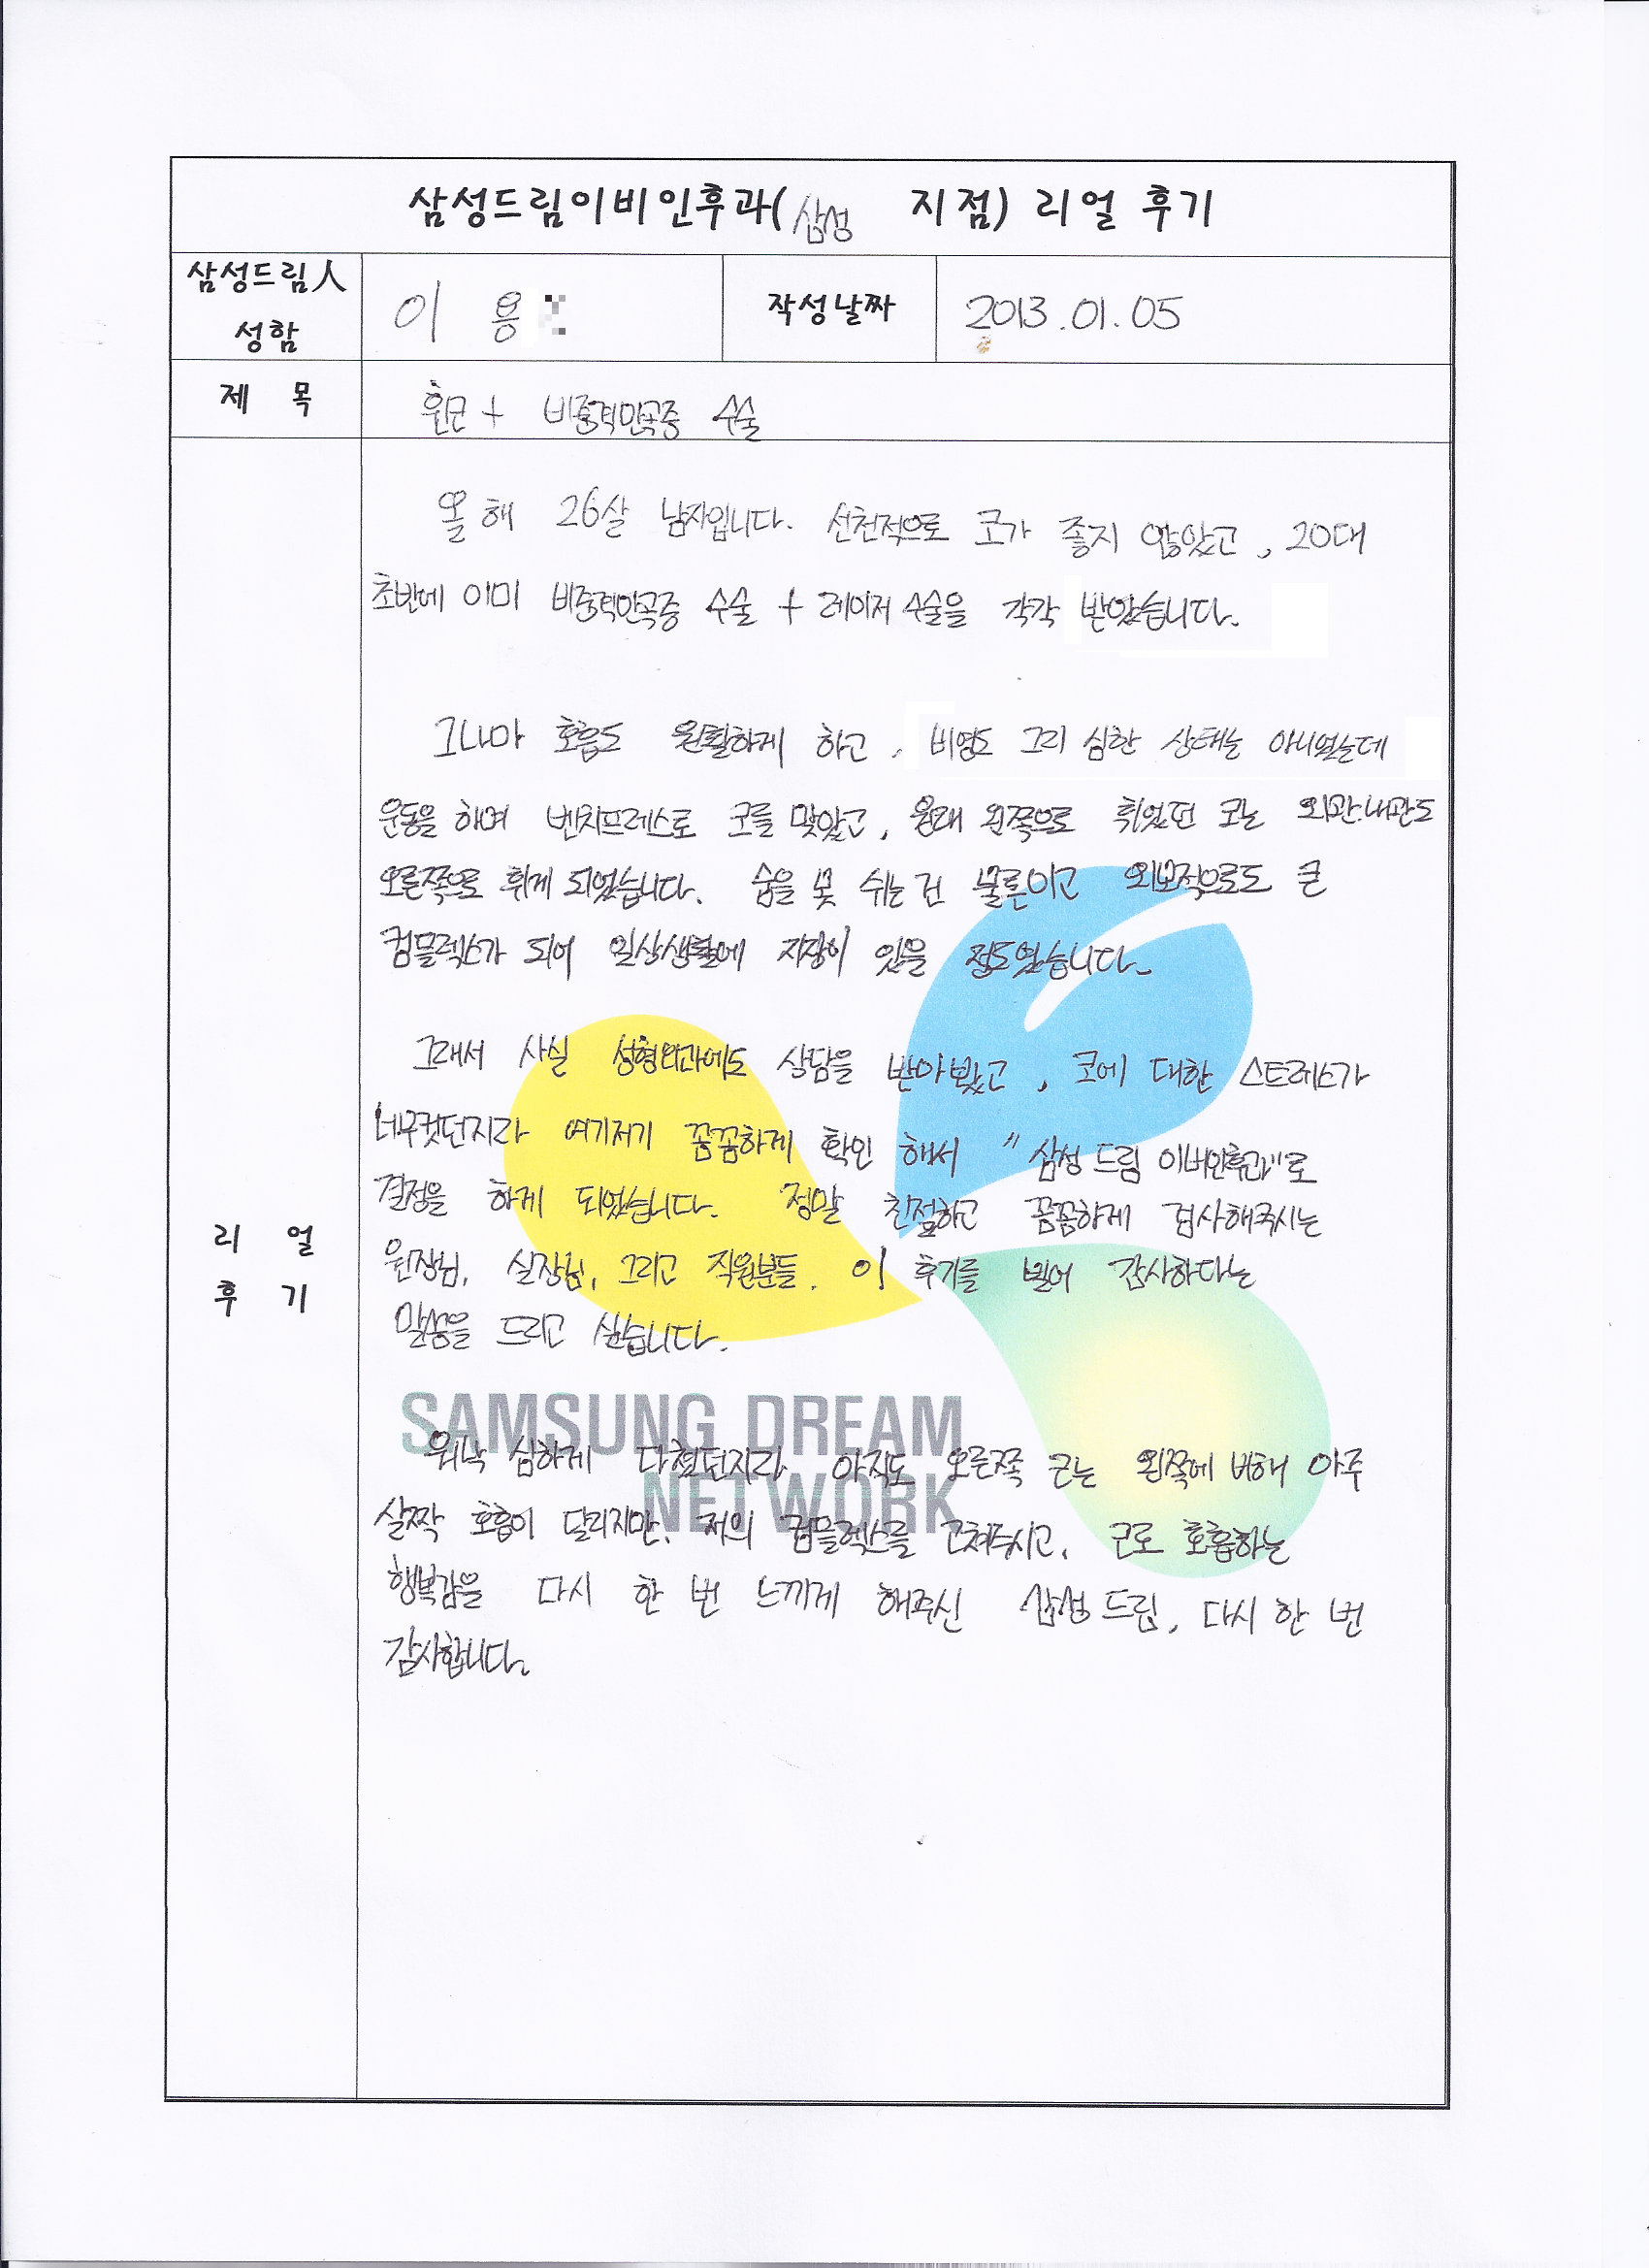 삼성드림이비인후과(삼성 지점) 리얼 후기
삼성드림人 성함
이 용
작성날짜
2013.01.05
제 목
휜코 + 비중격만곡증 수술
리 얼 후 기
올해 26살 남자입니다. 선천적으로 코가 좋지 않았고, 20대
초반에 이미 비중격만곡증 수술 + 레이저 수술을 각각 받았습니다.
그나마 호흡도 원활하게 하고, 비염도 그리 심한 상태는 아니였는데
운동을 하며 벤치프레스로 코를 맞았고, 원래 왼쪽으로 휘었던 코는 외관.내관도
오른쪽으로 휘게 되었습니다. 숨을 못 쉬는 건 물론이고 외모적으로도 큰
컴플렉스가 되어 일상생활에 지장이 있을 정도였습니다.
그래서 사실 성형외과에도 상담을 받아봤고, 코에 대한 스트레스가
너무컷던지라 여기저기 꼼꼼하게 확인 해서 "삼성 드림 이비인후과"로
결정을 하게 되었습니다. 정말 친절하고 꼼꼼하게 검사해주시는
원장님, 실장님, 그리고 직원분들. 이 후기를 빌어 감사하다는
말씀을 드리고 싶습니다.
SAMSUNG DREAM
NETWORK
워낙 심하게 다쳤던지라 아직도 오른쪽 코는 왼쪽에 비해 아주
살짝 호흡이 달리지만, 저의 컴플렉스를 고쳐주시고, 코로 호흡하는
행복감을 다시 한 번 느끼게 해주신 삼성 드림, 다시 한 번
감사합니다.